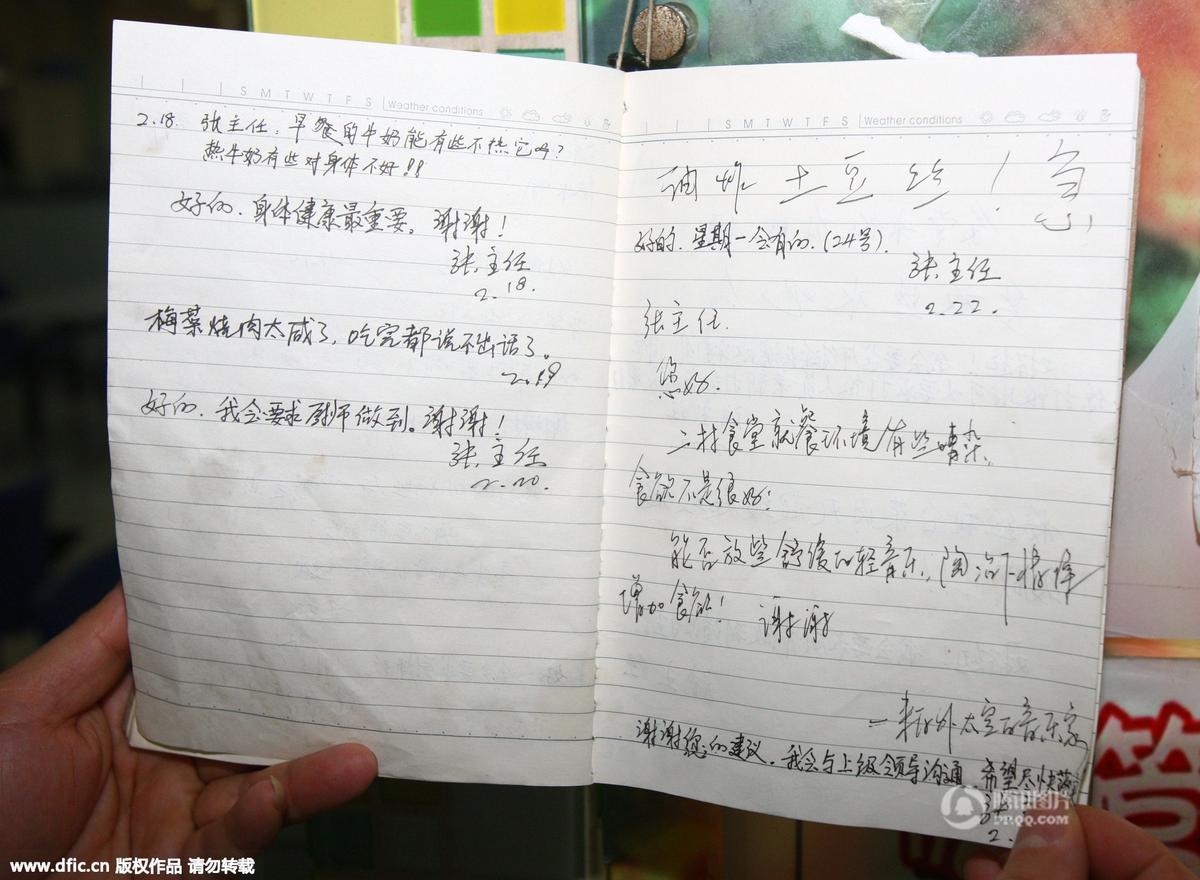 S M T W T F S Weather conditions
2.18. 张主任，早餐的牛奶能有些不热它吗？
热牛奶有些对身体不好！！
好的，身体健康最重要，谢谢！
张主任
2.18.
梅菜烧肉太咸了，吃完都说不出话了。
2.19
好的，我会要求厨师做到。谢谢！
张主任
2.20.
S M T W T F S Weather conditions
油炸土豆丝！急
好的，星期一会有的，(24号)。
张主任
2.22.
张主任.
您好.
二村食堂就餐环境有些嘈杂，
食欲不是很好；
能否放些舒缓的轻音乐，陶冶下情操
增加食欲！ 谢谢
一来自外太空的音乐家
谢谢您的建议。我会与上级领导沟通 希望尽快
2.
腾讯图片
PP.QQ.COM
www.dfic.cn 版权作品 请勿转载